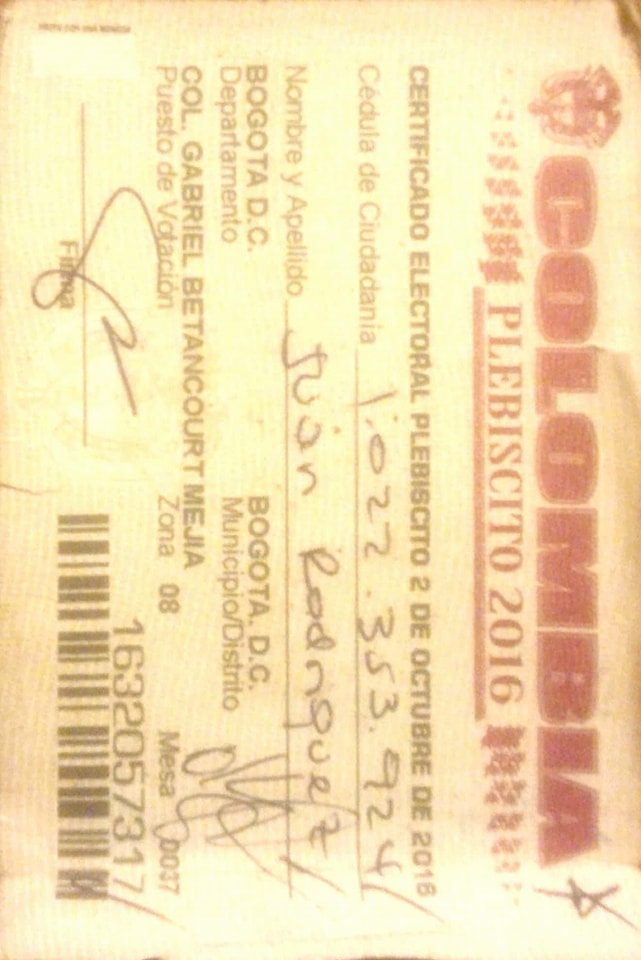 COLOMBIA
PLEBISCITO 2016
CERTIFICADO ELECTORAL PLEBISCITO 2 DE OCTUBRE DE 2016
Cédula de Ciudadanía 1.022.353.924
Nombre y Apellido Juan Rodriguez
BOGOTA D.C. BOGOTA. D.C.
Departamento Municipio/Distrito
COL. GABRIEL BETANCOURT MEJIA
Puesto de Votación Zona 08 Mesa 0037
1632057317
Firma